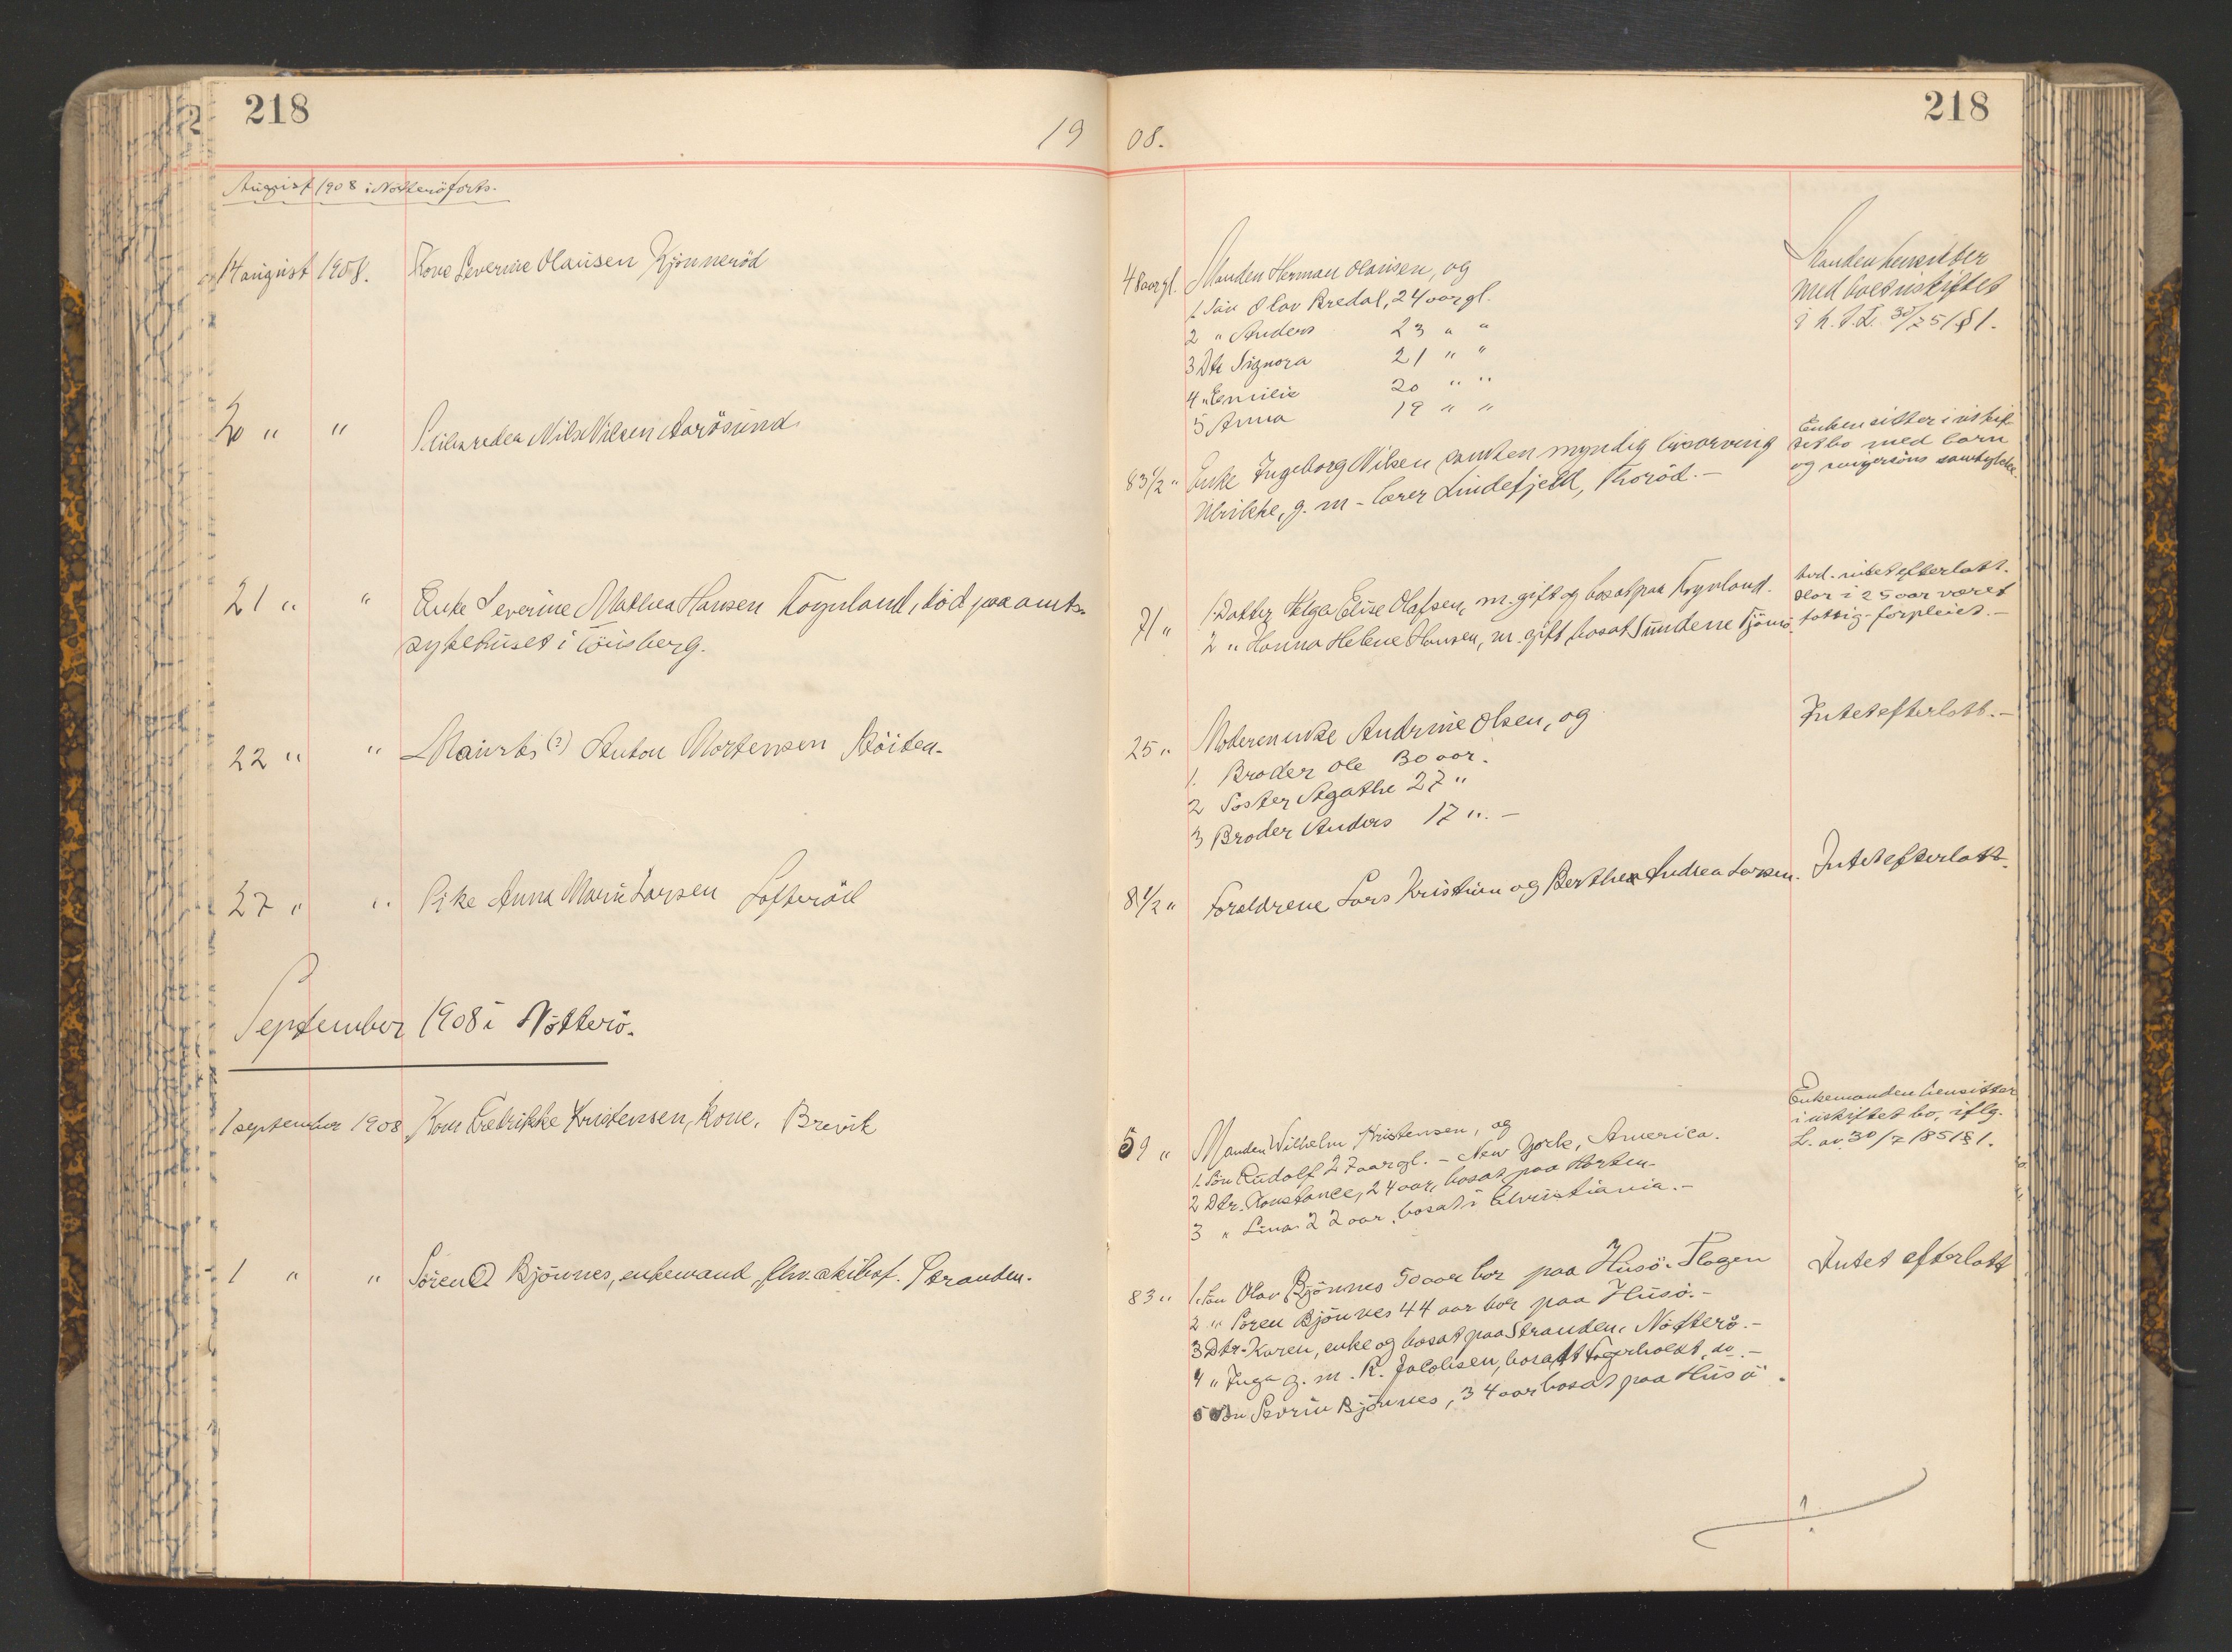 218
218
19 08.
August 1908 i Nötterö forts.
14 august 1908. Kone Severine Olausen Kjönneröd
48 aar gl. Manden Herman Olausen, og
1. Sön Olav Bredal, 24 aar gl.
2 " Anders 23 " "
3 Dtr Signora 21 " "
4 " Emilie 20 " "
5 Anna 19 " "
Manden hensitter
med boet uskiftet
30/7 51 § 1.
20 " " Skibsreder Nils Nilsen Aarösund
83 1/2 " Enke Ingeborg Nilsen samt en myndig livsarving
Ulrikke, g. m - lærer Lindefjeld, Thoröd. -
Enken sitter i uskif-
tet bo med barn
og svigersöns samtykke.
21 " " Enke Severine Mathea Hansen Fögnland, död paa amts-
sykehuset i Tönsberg.
71 " 1. Datter Helga Elise Olafsen, m. gift og bosat paa Föynland.
2 " Hanna Helene Hansen, m. gift, bosat Sundene Tjömö.
Avd. intet efterlatt.
Har i 25 aar været
fattig-forpleiet. -
22 " " Mauritz (?) Anton Mortensen Röiten.
25 " Moderen enke Andrine Olsen, og
1. Broder Ole 30 aar.
2 Söster Agathe 27 "
3 Broder Anders 17 ". -
Intet efterlatt. -
27 " " Pike Anna Marie Larsen Lofteröd
8 1/2 " Foreldrene Lars Kristian og Berthea Andrea Larsen.
Intet efterlatt.
September 1908 i Nötterö.
1 september 1908 Kone Fredrikke Kristensen, kone, Brevik
59 " Manden Wilhelm Kristensen, og
1. Sön Rudolf 27 aar gl. - New York, America.
2 Dtr. Konstance, 24 aar, bosat paa Horten.
3 " Lina 22 aar, bosat i Christiania. -
Enkemanden hensitter
i uskiftet bo, iflg.
L. av 30/7 1851 § 1.
1 " " Sören O Bjönnes, enkemand, fhv. skibsf. Stranden.
83 " 1. Sön Olav Bjönnes 50 aar bor paa Husö i Slagen
2 " Sören Bjönnes 44 aar bor paa Husö. -
3 Dtr. Karen, enke og bosat paa Stranden i Nötterö. -
4 " Inga g. m. R. Jacobsen, bosatt Fagerholdt, do. -
5 Sön Sevrin Bjönnes, 34 aar bosat paa Husö.
Intet efterlatt